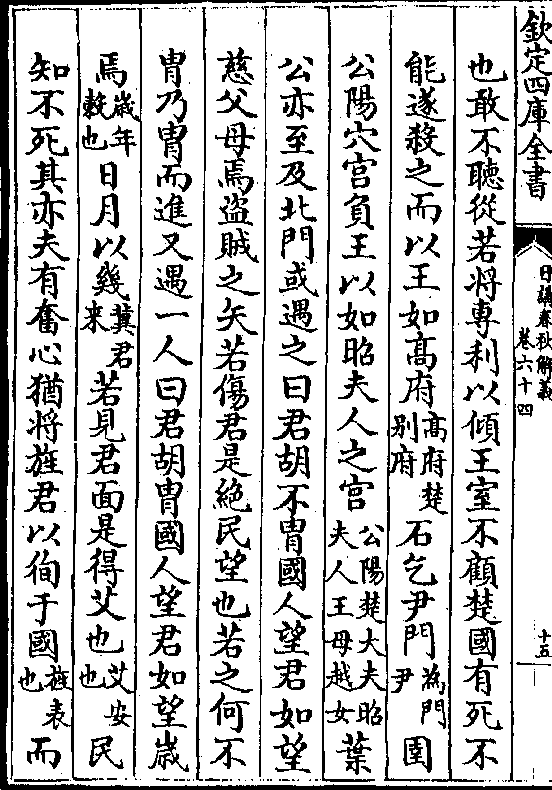 欽定四庫全書
日講春秋解義
卷六十四
十五
也敢不聽從若将專利以傾王室不顧楚國有死不
能遂殺之而以王如髙府髙府楚别府石乞尹門為門尹圍
公陽穴宫負王以如昭夫人之宫公陽楚大夫昭夫人王母越女葉
公亦至及北門或遇之曰君胡不胄國人望君如望
慈父母焉盗賊之矢若傷君是絶民望也若之何不
胄乃胄而進又遇一人曰君胡胄國人望君如望嵗
焉嵗年榖也日月以幾冀君来若見君面是得艾也艾安也民
知不死其亦夫有奮心猶将旌君以徇于國旌表也而